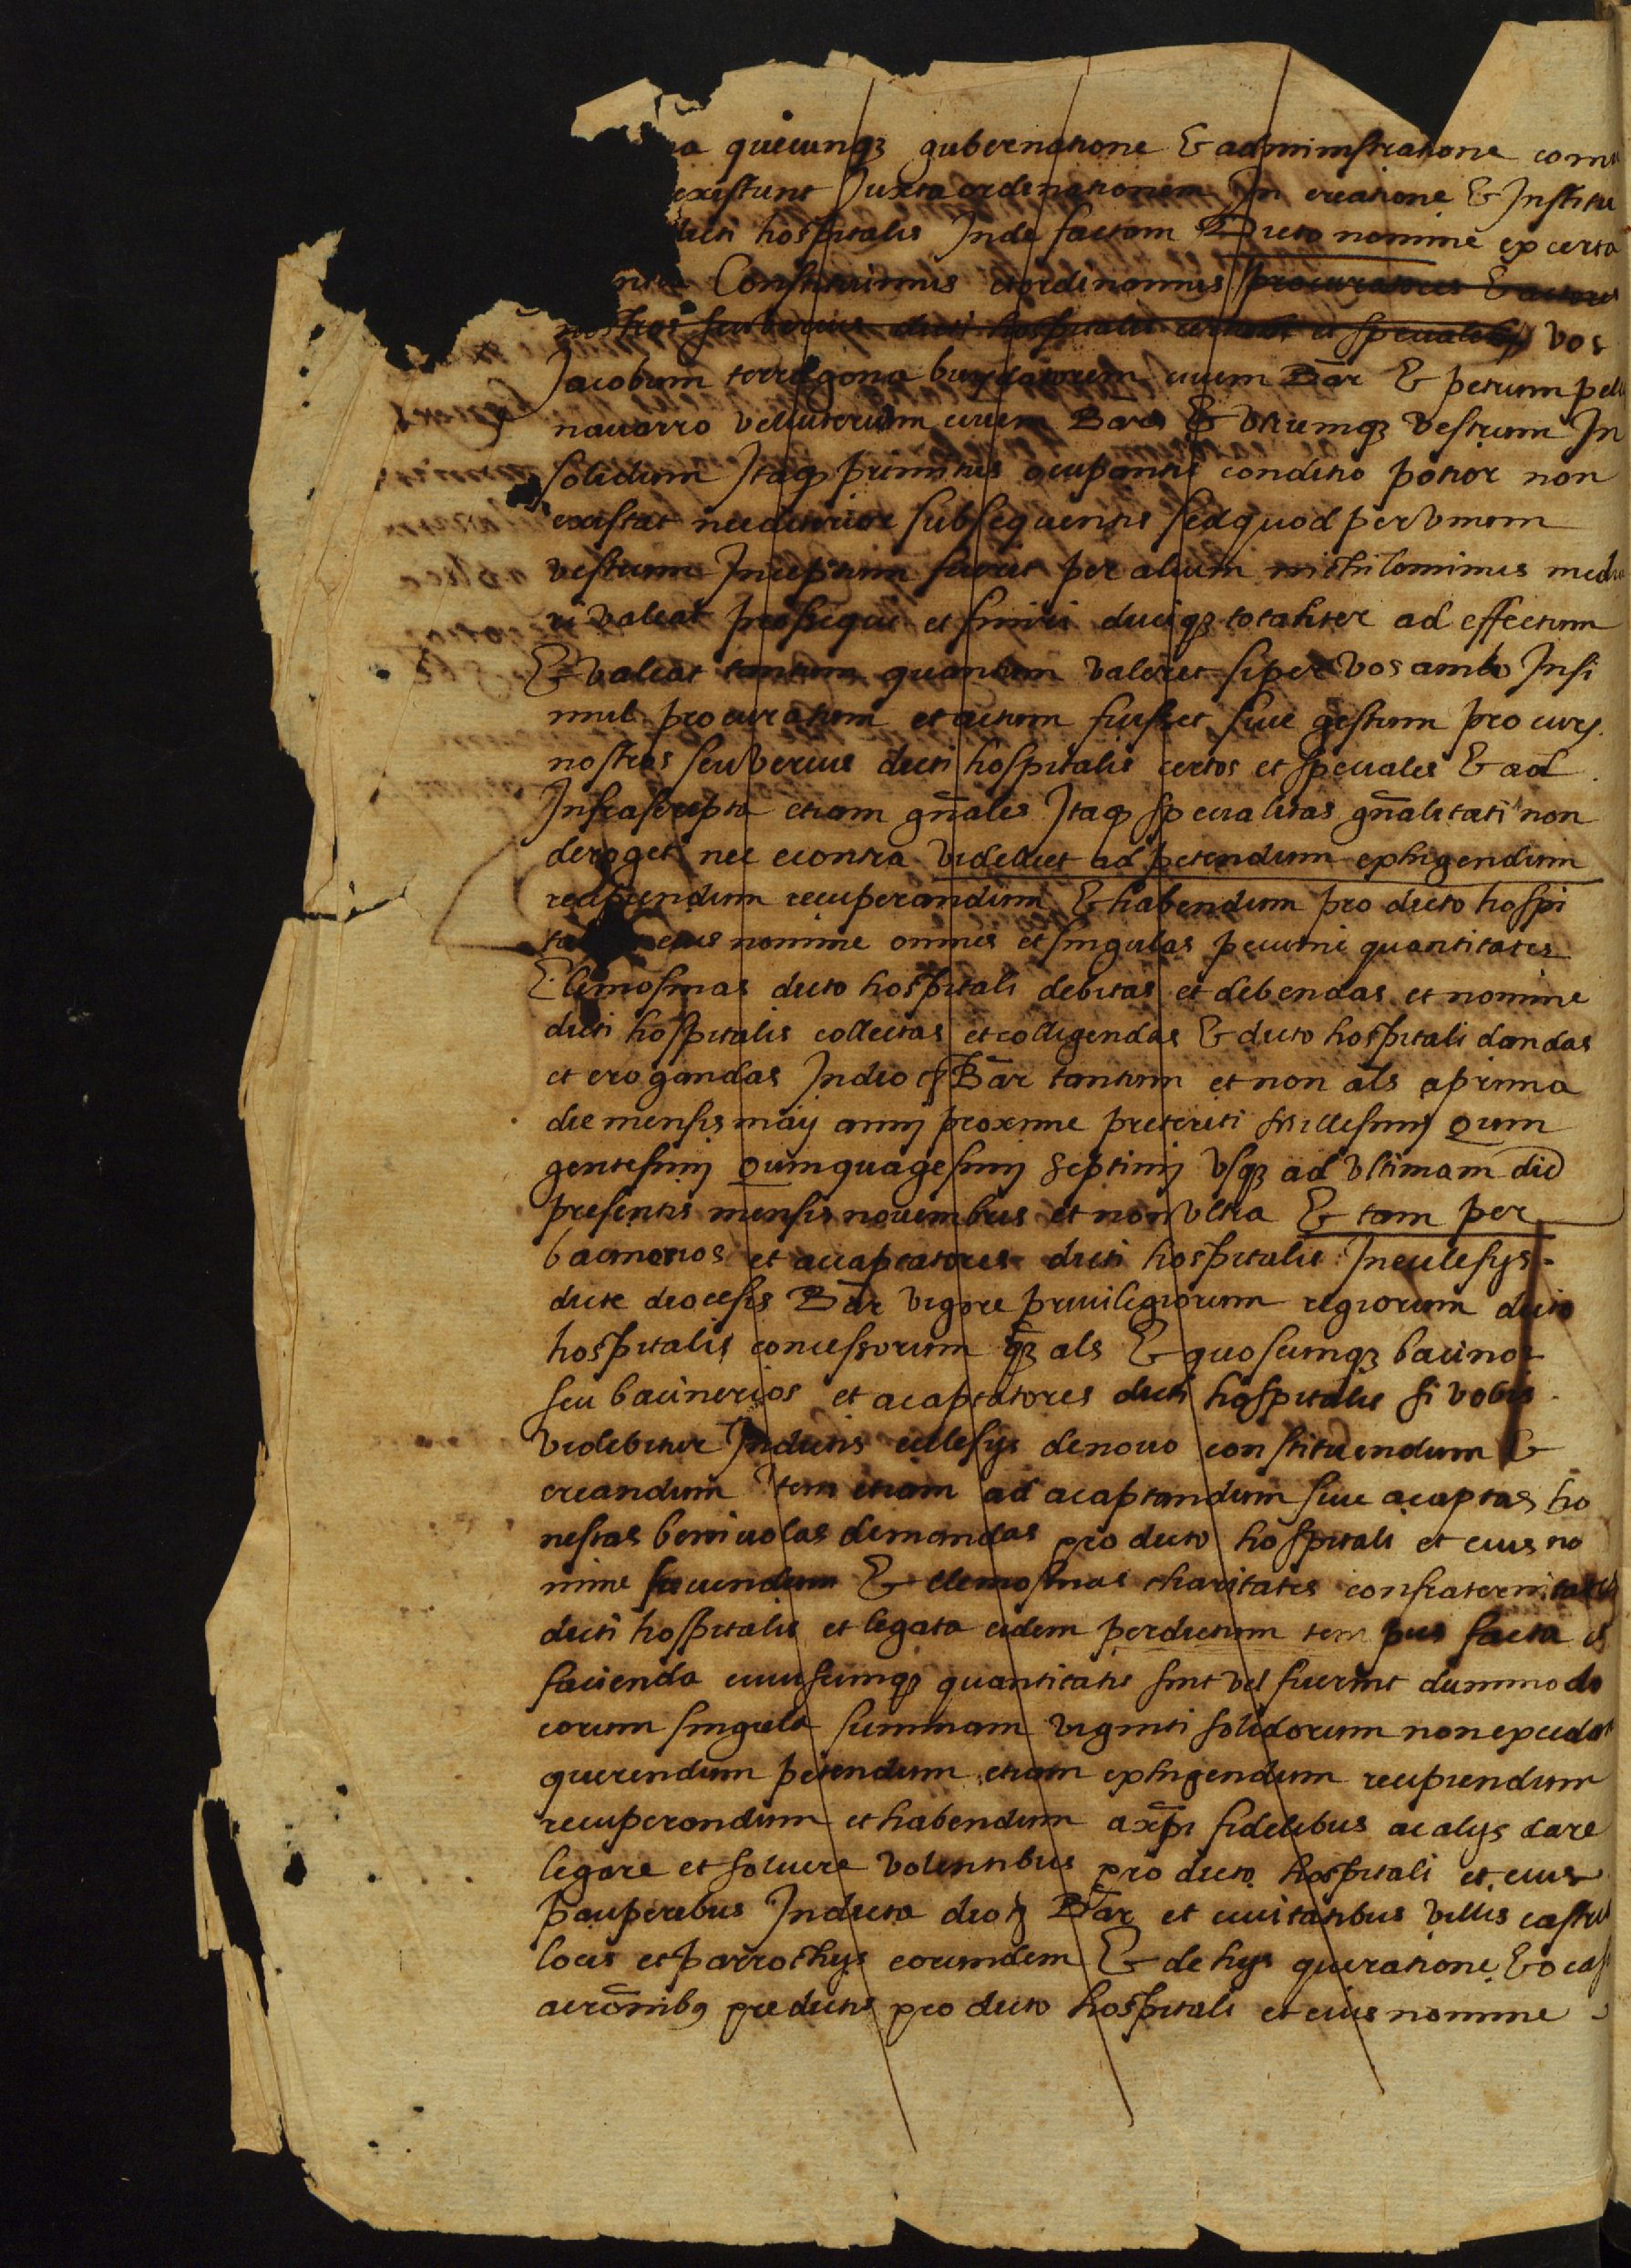 quecunqz gubernatione & administratione com
existunt Juxta ordinationem In creatione & Institu
dicti hospitalis Inde factam Dicto nomine ex certa
Constituimus et ordinamus procuratores & actores
nostros seu verius dicti hospitalis certos et speciales vos
Jacobum terragona civem Bar & petrum
navarro velluterium civem Bar & utrumqz vestrum In
solidum Itaq primitus ocupantis conditio potior non
existat nec deterior subsequentis sed quod per unum
vestrum Inceptum fuerit per alium nichilominus media
ri valeat prosequi et finiri duciqz totaliter ad effectum
& valeat tantum quantum valeret si per vos ambo Insi
mul procuratum et actum fuisset sive gestum procures
nostros seu verius dicti hospitalis certos et speciales & ad
Infrascripta etiam gnales Itaq specialitas gnalitati non
deroget nec econtra videlicet ad petendum exhigendum
recipiendum recuperandum & habendum pro dicto hospi
eius nomine omnes et singulas pecunie quantitates
Elemosinas dicto hospitali debitas et debendas et nomine
dicti hospitalis collectas et colligendas & dicto hospitali dandas
et erogandas In dioc Bar tantum et non als a prima
die mensis maij annj proxime preteriti Millesimj quin
gentesimj quinquagesimj septimj usqz ad ultimam die
presentis mensis novembris et non ultra & tam per
bacinerios et accaptatores dicti hospitalis In ecclesijs
dicte diocesis Bar vigore privilegiorum regiorum dicto
hospitalis concessorum qz als & quoscumqz bacinos
seu bacinerios et acaptatores dicti hospitalis si vobis
videbitur In dictis ecclesijs de novo constituendum &
creandum Item etiam ad acaptandum sive acaptas ho
nestas benivolas demandas pro dicto hospitali et eius no
mine faciendum & elemosinas charitates confraternitates
dicti hospitalis et legata eidem per dictum tempus facta et
facienda cuiuscumqz quantitatis sint vel fuerint dummodo
eorum singula summam viginti solidorum non excedat
querendum petendum etiam exhigendum recipiendum
recuperandum et habendum a xpi fidelibus ac alijs dare
legare et solvere volentibus pro dicto hospitali et eius
pauperibus In dicta dioc Bar et civitatibus villis castris
locis et parrochijs eorumdem & de hijs que ratione & ocas
ac rombs predictis pro dicto hospitali et eius nomine